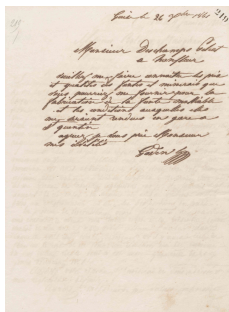 Guise le 26 7bre 1861
219
Monsieur Deschamps Postel
a honfleur
veuillez me faire connaitre les prix
et qualités des fontes et minerais que
vous pourriez me fournir pour la
fabrication de la fonte malléable
et les conditions auxquelles elles
me seraient rendues en gare a
St quentin
agréez je vous prie Monsieur
mes civilités
Godin